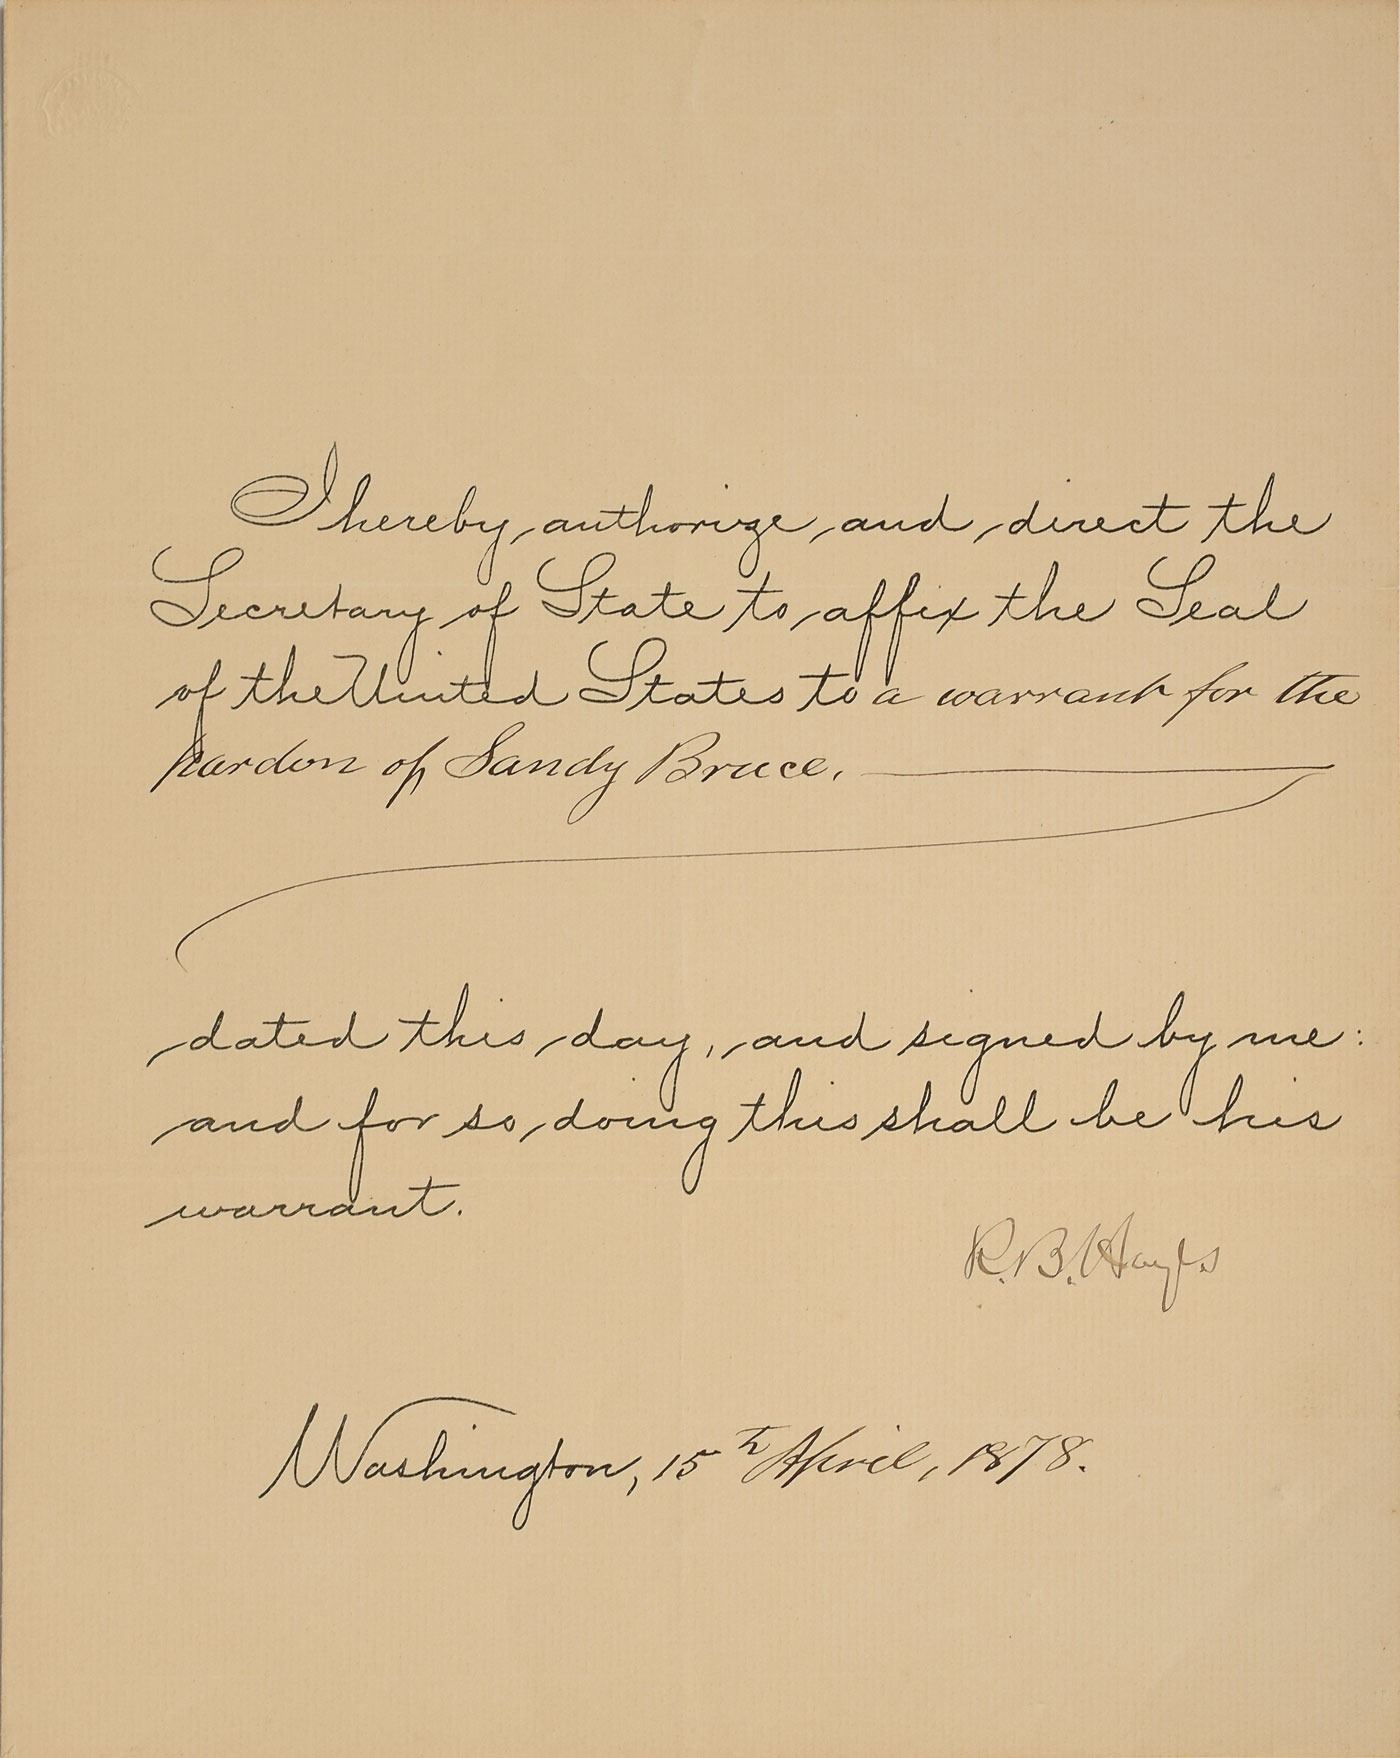 I hereby authorize and direct the
Secretary of State to affix the Seal
of the United States to a warrant for the
pardon of Sandy Bruce.
dated this day, and signed by me:
and for so doing this shall be his
warrant.
R. B. Hayes
Washington, 15th April, 1878.